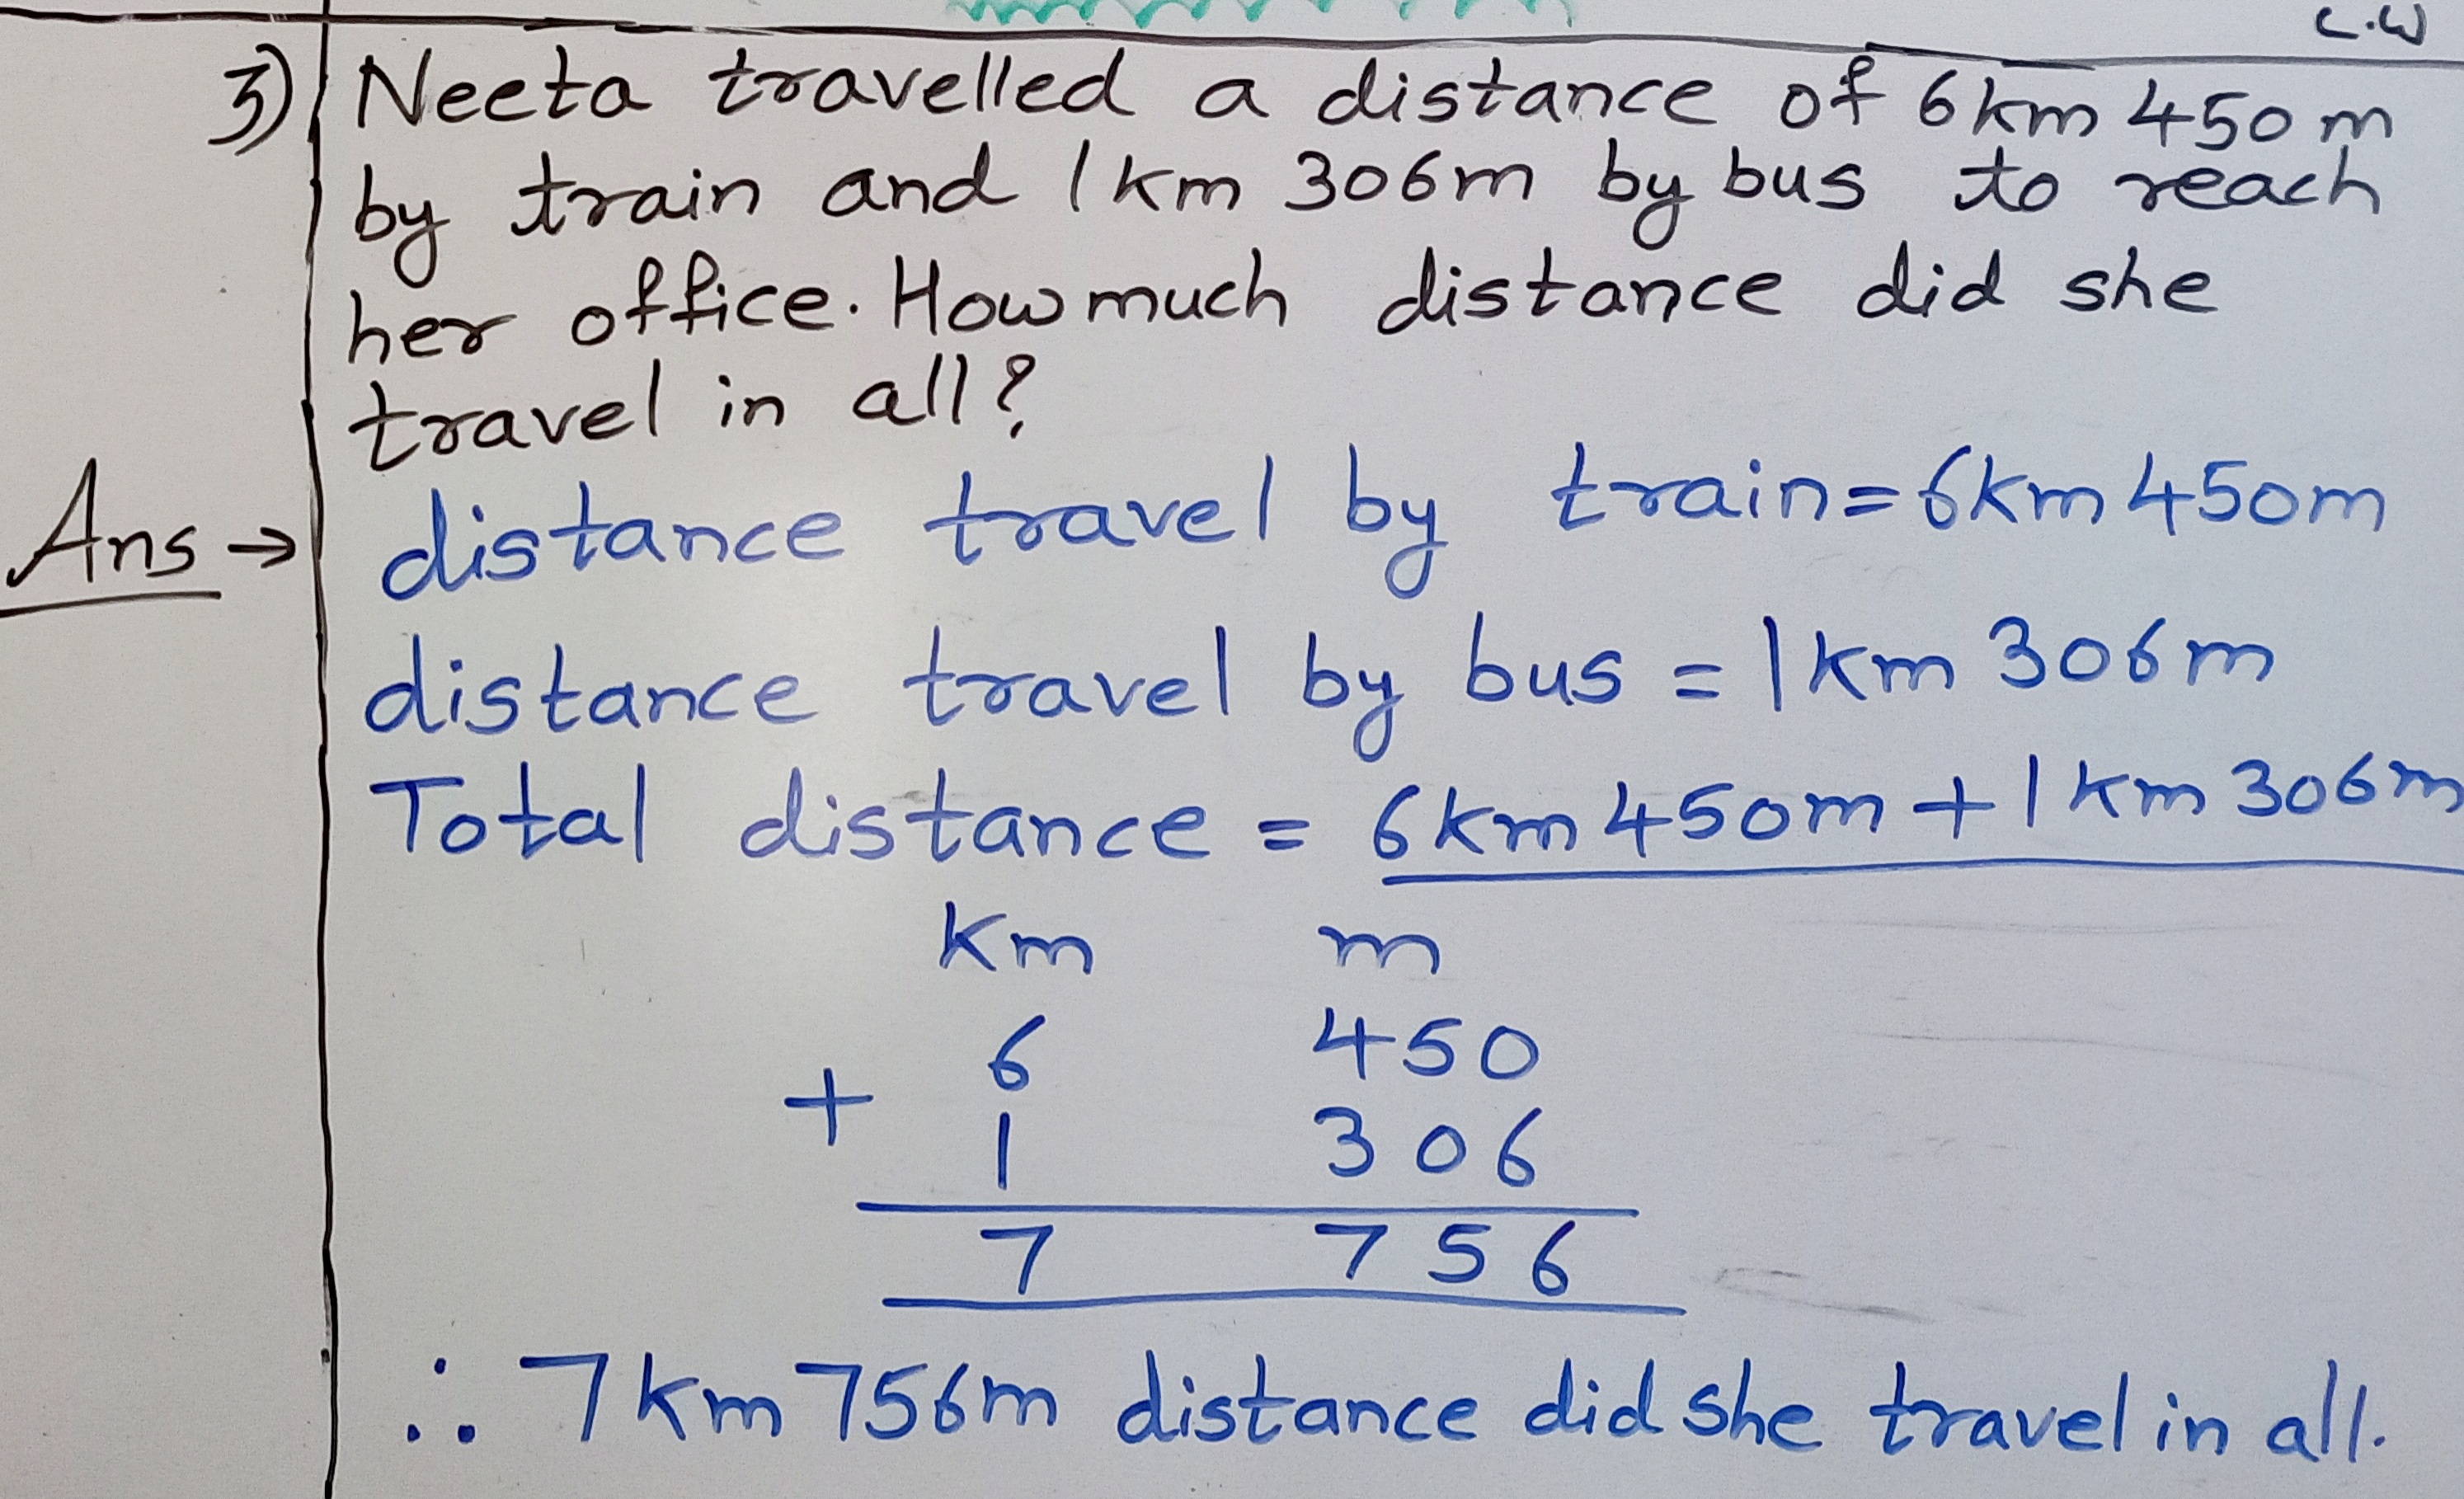 C.W
3) Neeta travelled a distance of 6km 450m
by train and 1km 306m by bus to reach
her office. How much distance did she
travel in all?
Ans → distance travel by train = 6km 450m
distance travel by bus = 1km 306m
Total distance = 6km 450m + 1km 306m
km m
6 450
+ 1 306
7 756
∴ 7km 756m distance did she travel in all.